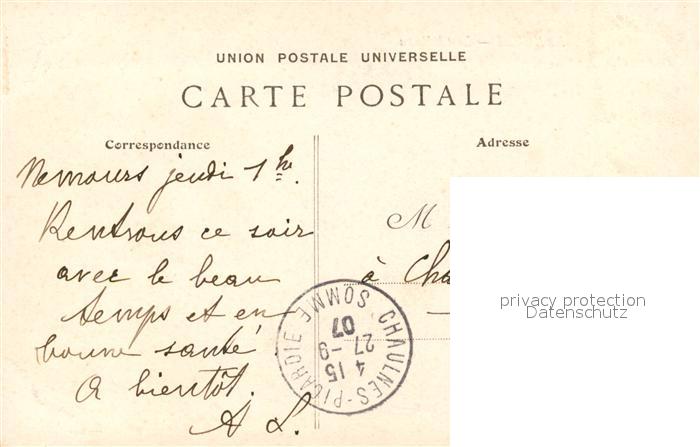 UNION POSTALE UNIVERSELLE
CARTE POSTALE
Correspondance
Adresse
Nemours jeudi 1h.
Rentrons ce soir
avec le beau
temps et en
bonne santé
A bientôt.
A L.
M
à Cha
CHAULNES-PICARDIE SOMME
4 15
27 -9
07
privacy protection
Datenschutz